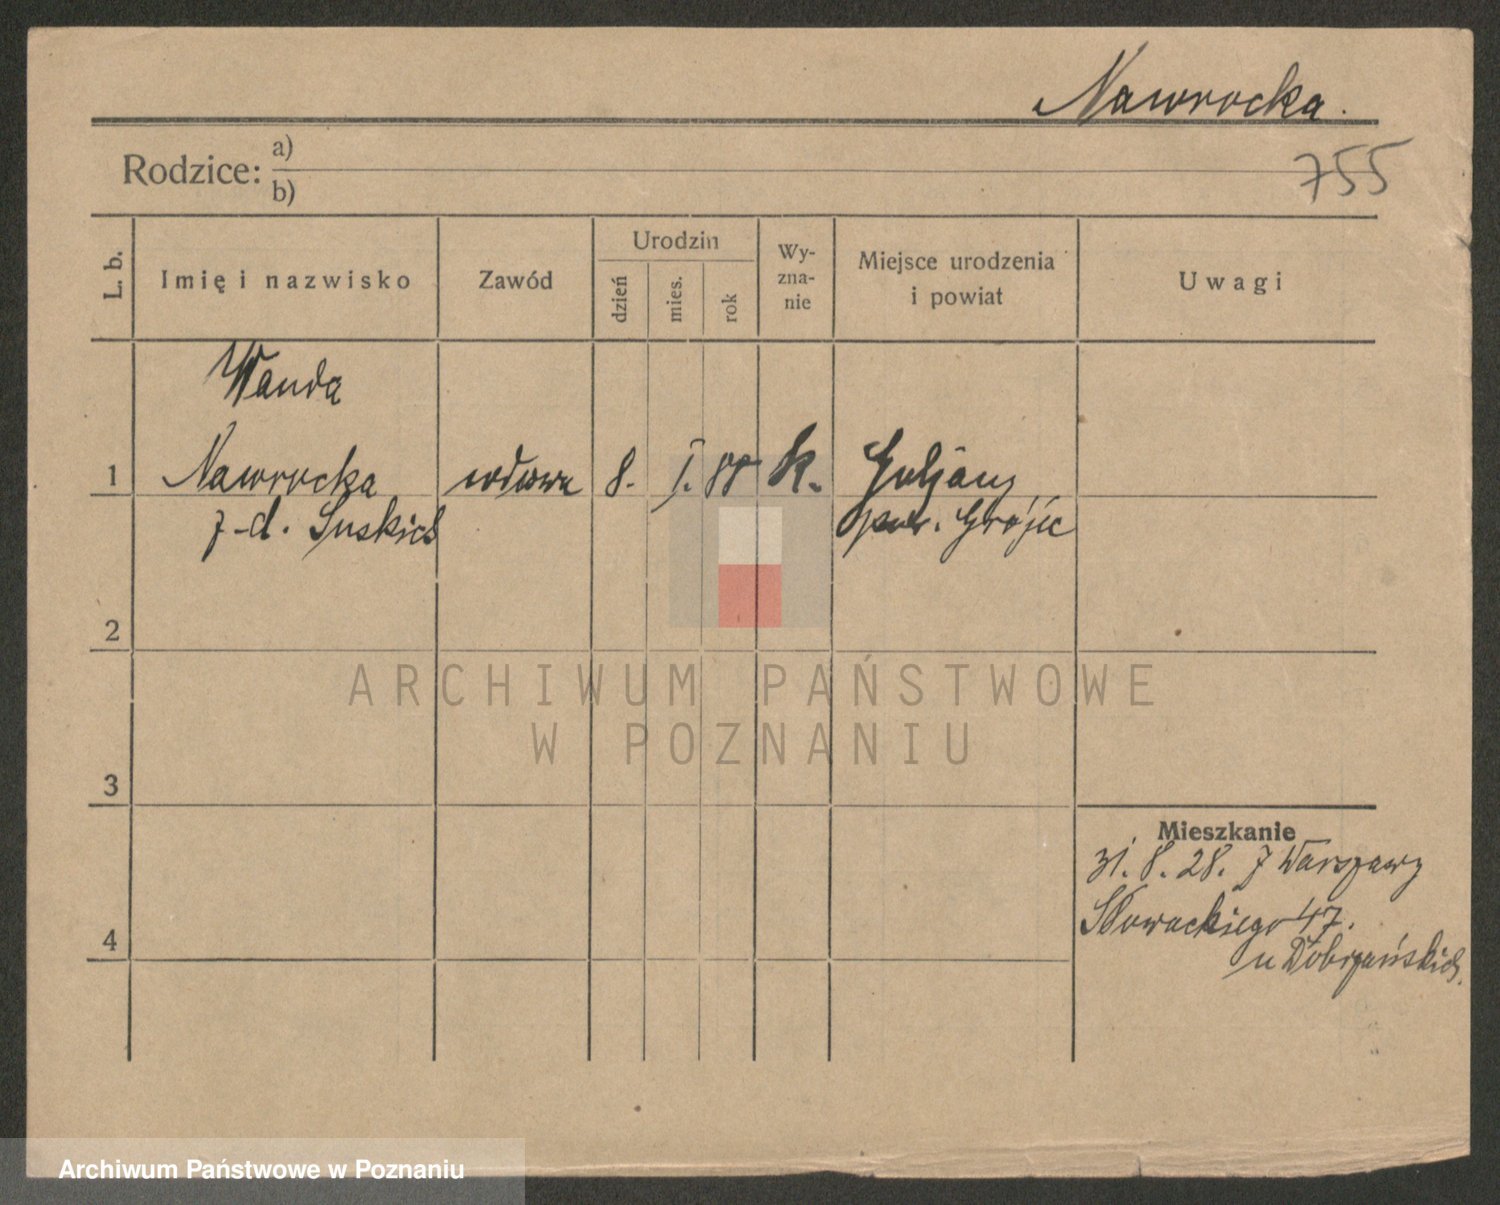 Nawrocka.
755
Rodzice: a)
b)
L. b.
Imię i nazwisko
Zawód
Urodzin
dzień
mies.
rok
Wy-
zna-
nie
Miejsce urodzenia
i powiat
Uwagi
Wanda
1 Nawrocka wdowa 8. I. 88 k.
z d. Suskich pow. Grójec
2
3
4
Mieszkanie
31. 8. 28. z Warszawy
Słowackiego 47.
u Dobrzańskich.
ARCHIWUM PAŃSTWOWE
W POZNANIU
Archiwum Państwowe w Poznaniu